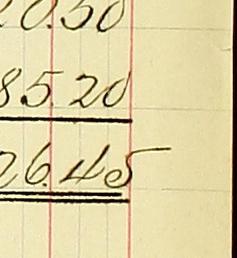 20.50
85.20
26.45